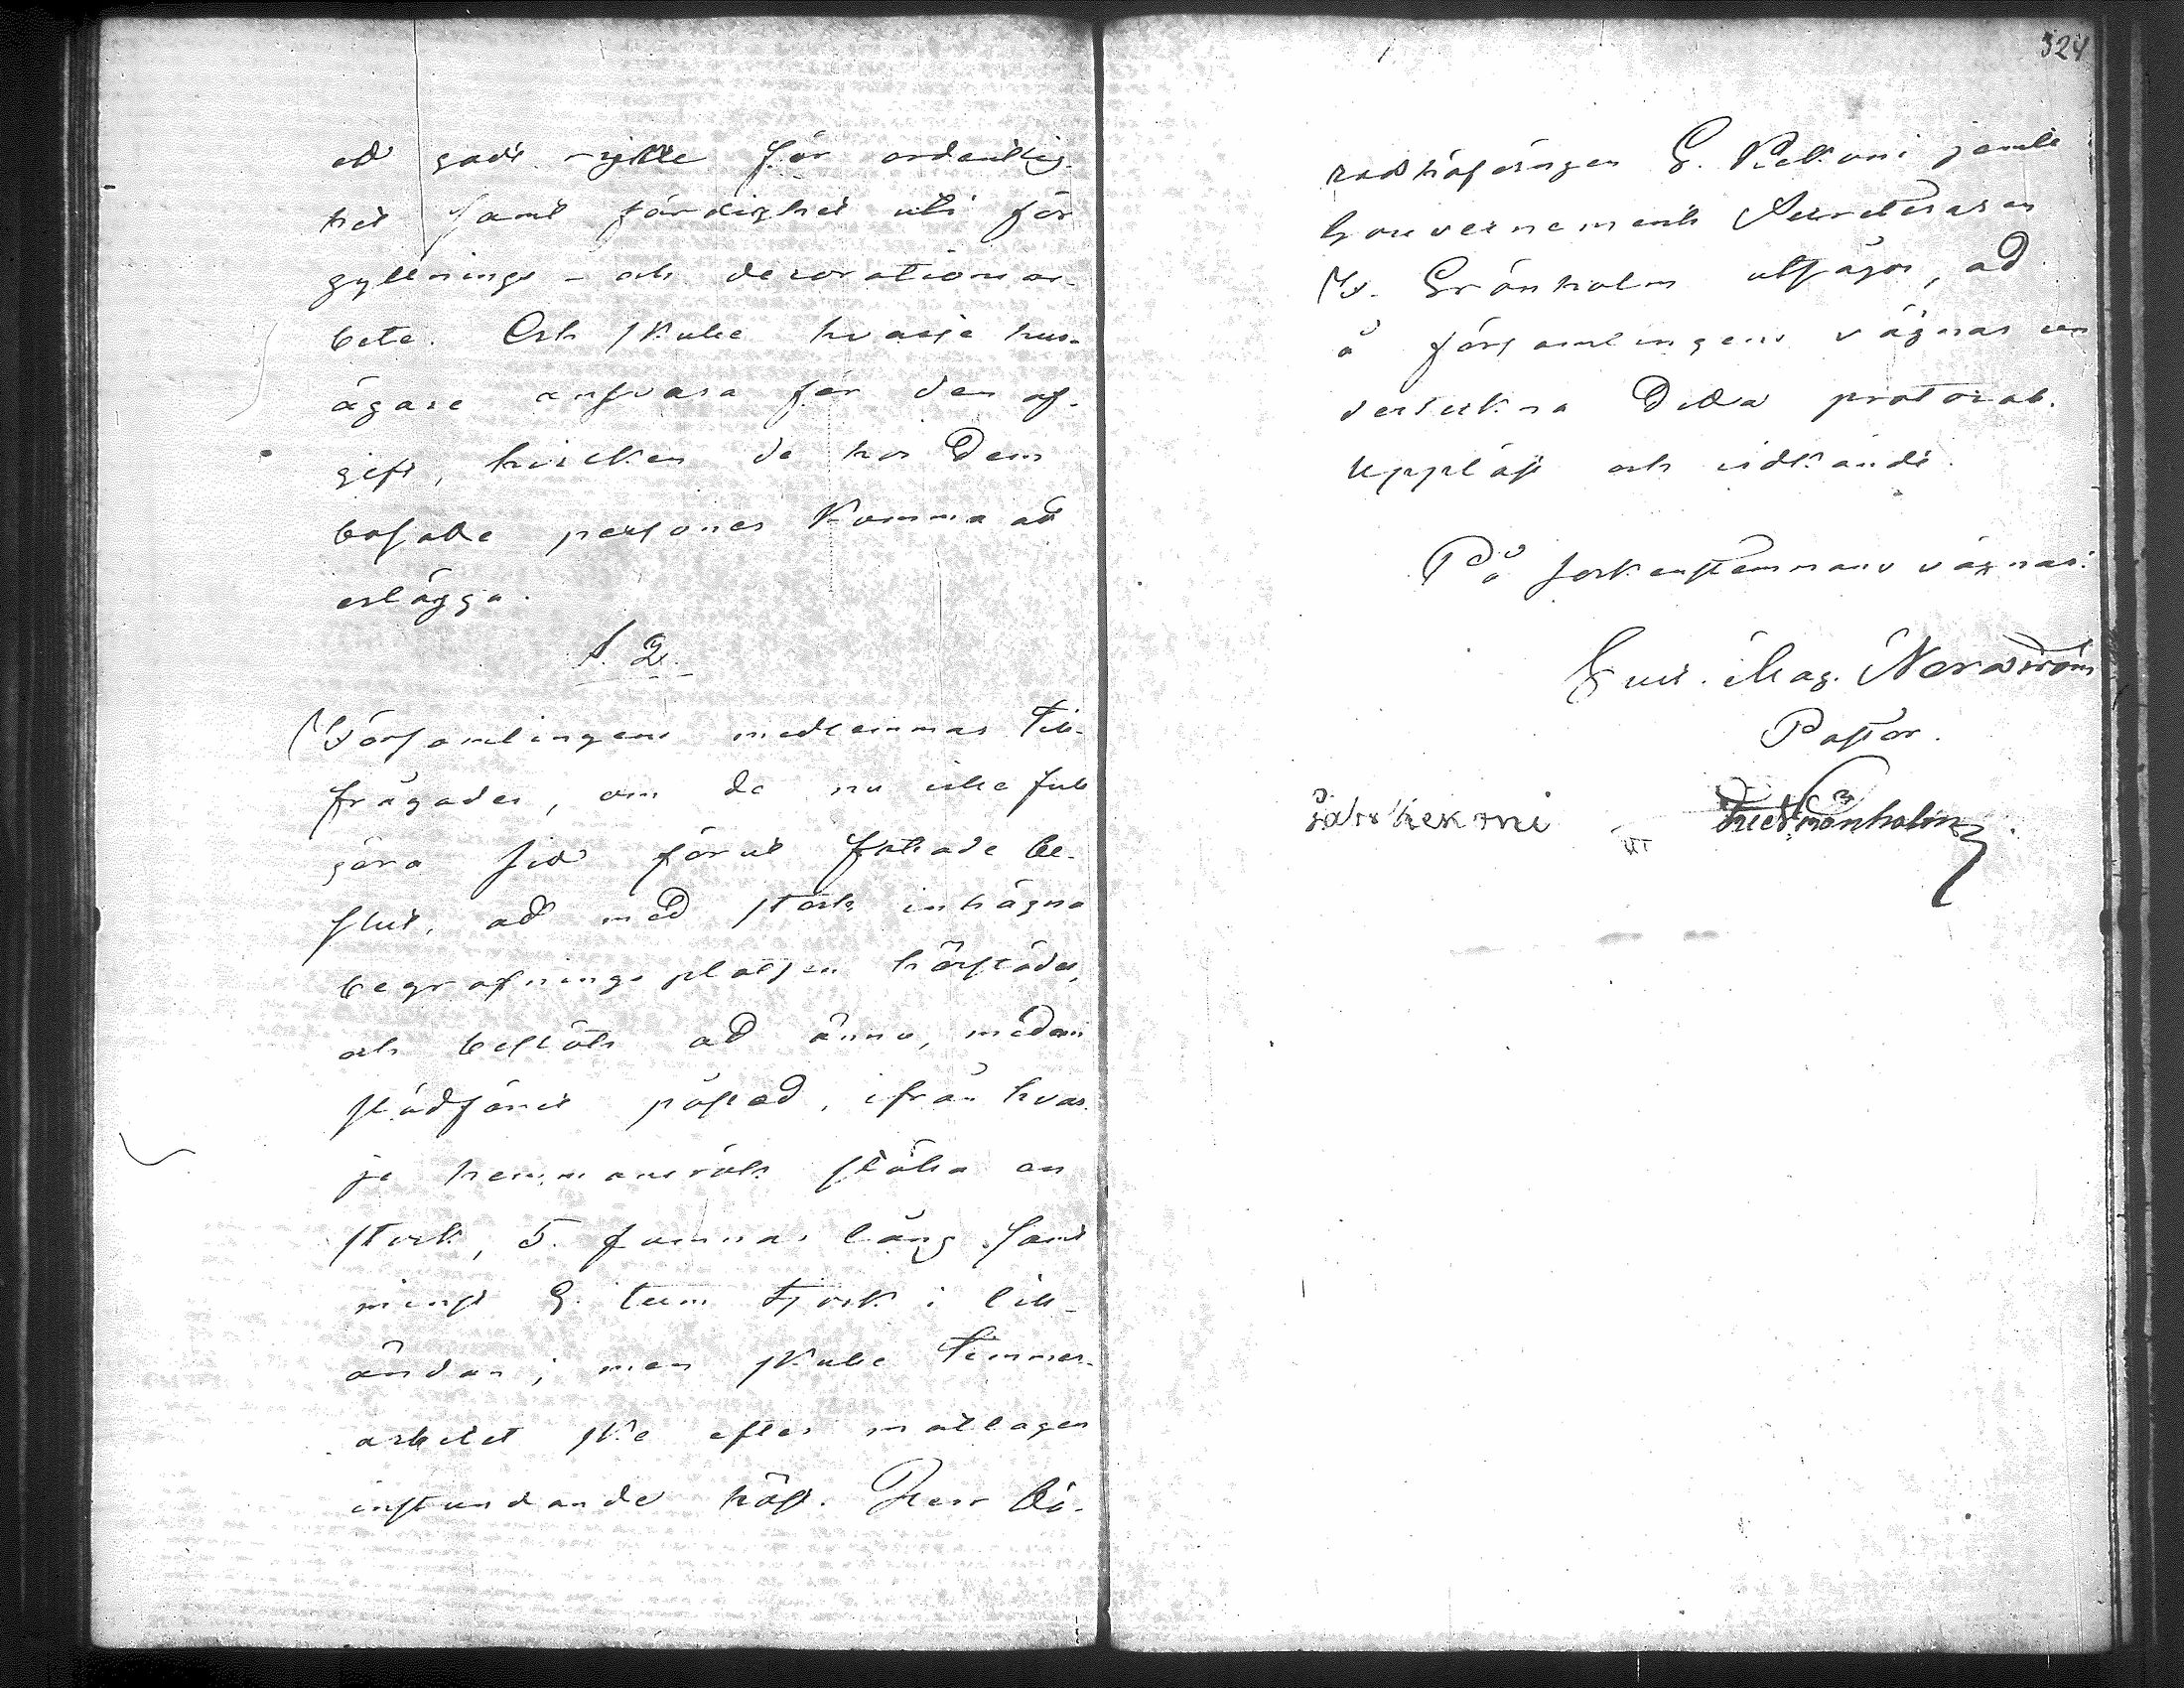 ett godt rykte för ordentlig-
het samt färdighet uti för
gyllnings- och decorationsar-
bete. Och skulle hvarje hus-
ägare ansvara för den af-
gift, hvilken de hos dem
bosatte personer komma att
erlägga.
§. 2.
Församlingens medlemmar till-
frågades, om de nu ville full
göra sitt förut fattade be-
slut, att med stock inhägna
begrafningsplatsen härstädes,
och beslöts att ännu, medan
slädföret påstod, ifrån hvar-
je hemmansrök släpa en
stock, 5. famnar lång samt
minst 9. tum tjock i lill-
ändan; men skulle timmer-
arbetet ske efter matlagen
instundande höst. Herr Bi-
324
rådshöfdingen G. Pelkoni jemte
Gouvernements Secreteraren
F. Grönholm utsågos, att
å församlingens vägnar un
derteckna detta protocoll.
Uppläst och vidkändt.
På sockenstemmans vägnar:
Gust. Mag. Norström
Pastor.
Grönholm